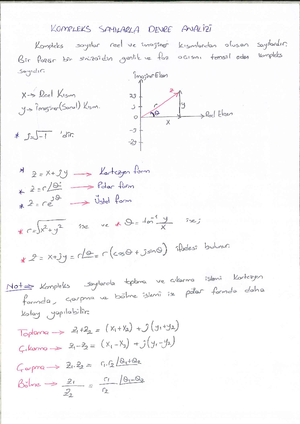 KOMPLEKS SAYILARLA DEVRE ANALİZİ
Kompleks sayılar reel ve imajiner kısımlardan oluşan sayılardır.
Bir fazör bir sinüzoidin genlik ve faz açısını temsil eden kompleks
sayıdır.
İmajiner Eksen
x → Reel Kısım
y → İmajiner (Sanal) Kısım
* j=√-1 'dir.
2j
j
z
r
θ
y
x
Reel Eksen
-j
-2j
* z = x+jy → Kartezyen form
* z = r∠θ → Polar form
* z = re^jθ → Üstel form
* r=√x²+y² ise ve * θ = tan⁻¹ y/x ise;
* z = x+jy = r∠θ = r(cosθ + jsinθ) ifadesi bulunur.
Not: Kompleks sayılarda toplama ve çıkarma işlemi kartezyen
formunda, çarpma ve bölme işlemi ise polar formda daha
kolay yapılabilir.
Toplama → z₁+z₂ = (x₁+x₂) + j(y₁+y₂)
Çıkarma → z₁-z₂ = (x₁-x₂) + j(y₁-y₂)
Çarpma → z₁.z₂ = r₁.r₂ ∠θ₁+θ₂
Bölme → z₁/z₂ = r₁/r₂ ∠θ₁-θ₂